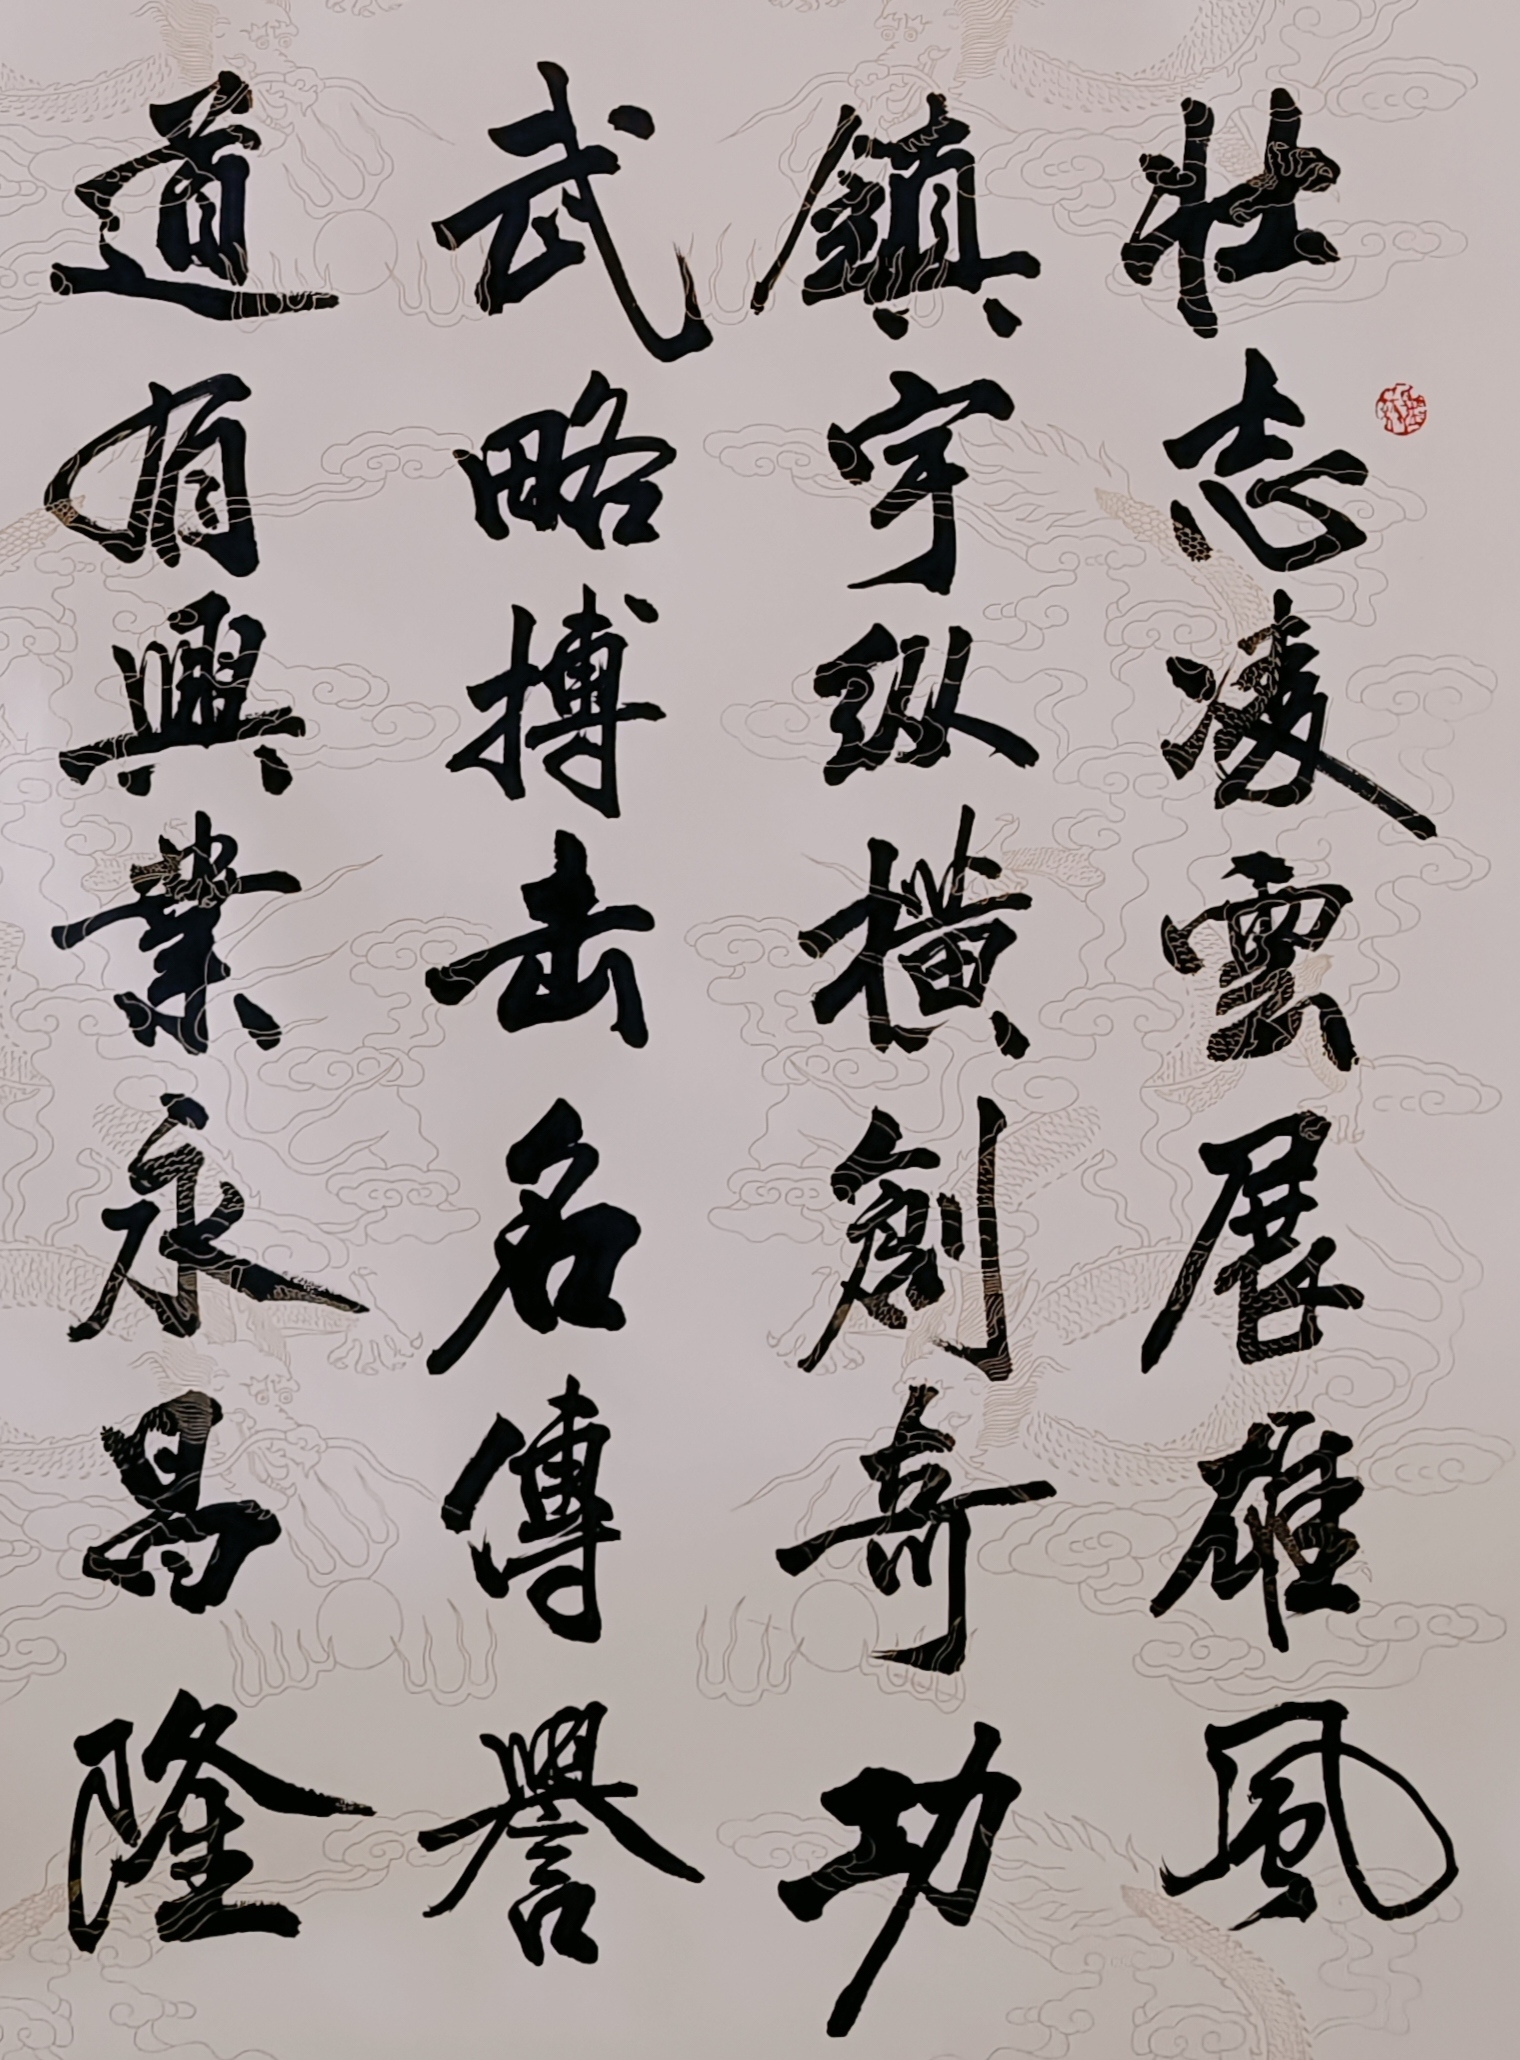 壮志凌雲展雄風
鎮宇纵横創奇功
武略搏击名傳譽
道有興業永昌隆